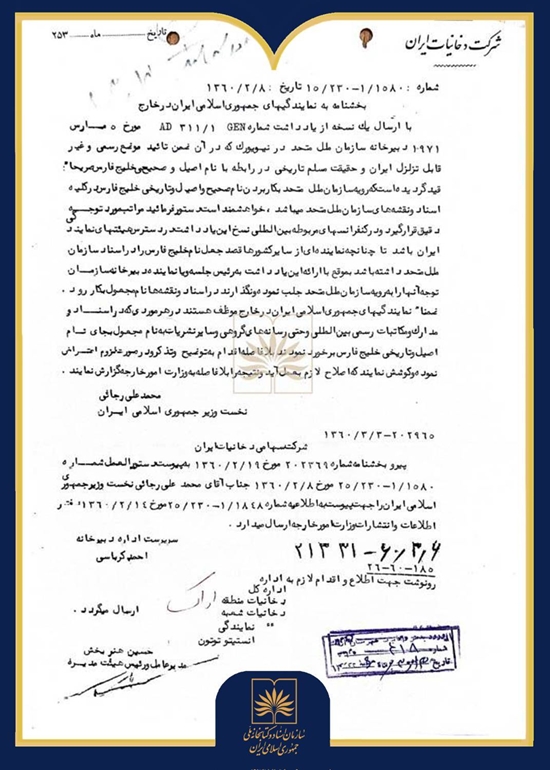 شرکت دخانیات ایران
تاریخ ماه ۲۵۳
شماره : ۱/۱۵۸۰-۱۵/۲۳۰ تاریخ : ۱۳۶۰/۲/۸
بخشنامه به نمایندگیهای جمهوری اسلامی ایران در خارج
با ارسال یك نسخه از یادداشت شماره AD ۳۱۱/۱ GEN مورخ ۵ مارس
۱۹۷۱ دبیرخانه سازمان ملل متحد در نیویورك که در آن ضمن تائید موضع رسمی و غیر
قابل تزلزل ایران و حقیقت مسلم تاریخی در رابطه با نام اصیل و صحیح خلیج فارس صریحا"
قید گردیده است که رویه سازمان ملل متحد بکار بردن نام صحیح واصیل و تاریخی خلیج فارس در کلیه
اسناد و نقشه های سازمان ملل متحد میباشد ، خواهشمند است دستور فرمائید مراتب مورد توجه
دقیق قرار گیرد و در کنفرانسهای مربوطه بین المللی نسخ این یادداشت در دسترس هیئتهای نمایندگی
ایران باشد تا چنانچه نماینده ای از سایر کشورها قصد جعل نام خلیج فارس را در اسناد سازمان
ملل متحد داشته باشد بموقع با ارائه این یادداشت به رئیس جلسه و یا نماینده دبیرخانه سازمان
توجه آنها را به رویه سازمان ملل متحد جلب نموده و نگذارند در اسناد و نقشه ها نام مجعول بکار رود .
ضمنا" نمایندگیهای جمهوری اسلامی ایران در خارج موظف هستند در هر موردی که در اسناد و
مدارك و مکاتبات رسمی بین المللی و حتی رسانه های گروهی و سایر نشریات به نام مجعول بجای نام
اصیل و تاریخی خلیج فارس برخورد نمودند بلافاصله اقدام به توضیح و تذکر و در صورت لزوم اعتراض
نموده و کوشش نمایند که اصلاح لازم بعمل آید و نتیجه را بلافاصله به وزارت امور خارجه گزارش نمایند .
محمد علی رجائی
نخست وزیر جمهوری اسلامی ایران
۱۳۶۰/۳/۳-۲۰۲۹۶۵
شرکت سهامی دخانیات ایران
پیرو بخشنامه شماره ۲۰۲۳۶۹ مورخ ۱۳۶۰/۲/۱۹ به پیوست دستورالعمل شماره
۱/۱۵۸۰-۲۵/۲۳۰ مورخ ۱۳۶۰/۲/۸ جناب آقای محمد علی رجائی نخست وزیر جمهوری
اسلامی ایران را جهت پیوست به اطلاعیه شماره ۱/۱۸۴۸-۲۵/۲۳۰ مورخ ۱۳۶۰/۲/۱۴ دفتر
اطلاعات و انتشارات وزارت امور خارجه ارسال میدارد .
سرپرست اداره دبیرخانه
احمد کرباسی
۲۱۳۳۱-۶۰/۳/۶
۲۶-۶۰-۱۸۵
رونوشت جهت اطلاع و اقدام لازم به اداره
اداره کل
دخانیات منطقه اراک
دخانیات شعبه ارسال میگردد .
" نمایندگی
انستیتو توتون
حسین هنر بخش
مدیر عامل و رئیس هیئت مدیره
شماره ۴۱۸
تاریخ
سازمان اسناد و کتابخانه ملی
جمهوری اسلامی ایران